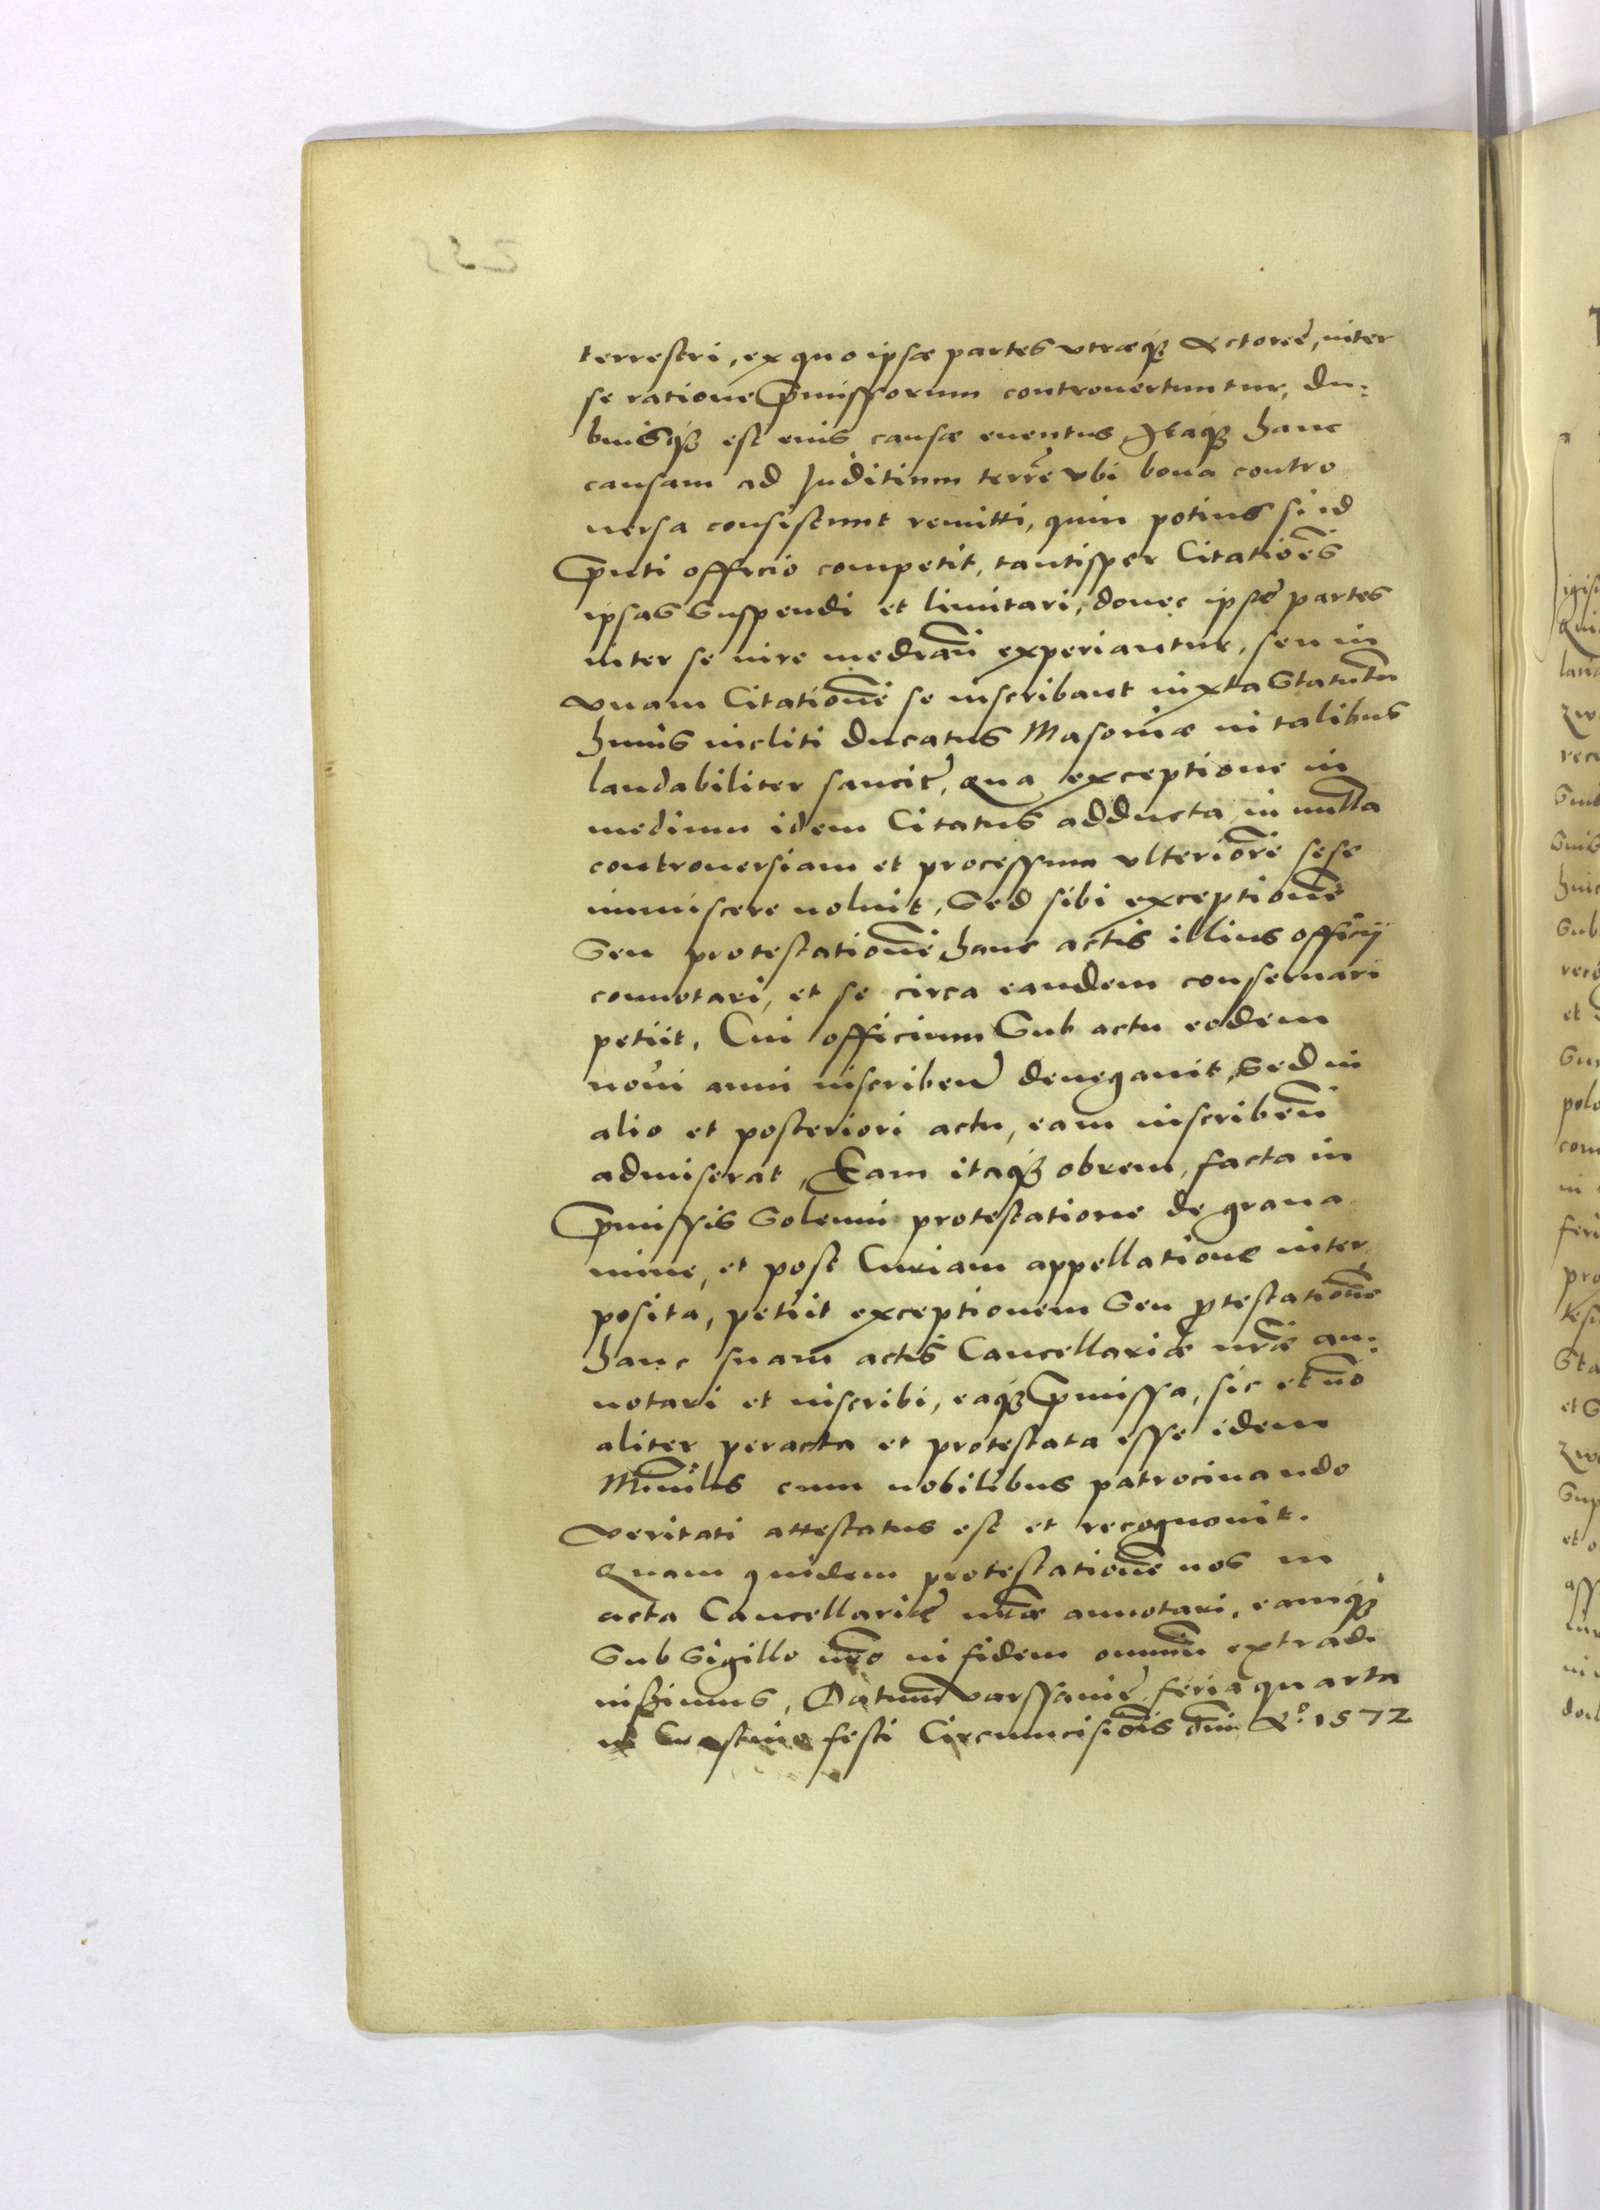 terrestri, ex quo ipsæ partes vtræq; Actoreæ, inter
se ratione Pmissorum controuertuntur, du:
biusq; est eius causæ euentus, Itaq; hanc
causam ad Juditium terrẽ vbi bona contro
uersa consistunt remitti, quin potius si id
Pnti officio competit, tantisper Citatioẽs
ipsas suspendi et limitari, donec ipsæ partes
inter se iure mediãn experiantur, seu in
vnam Citationẽ se inscribant iuxta Statutũ
huius incliti Ducatus Masoviæ in talibus
laudabiliter sancitũ, Qua exceptione in
medium idem Citatus adducta, in nullã
controuersiam et processum vlteriorẽ sese
immiscere noluit, Sed sibi exceptionẽ
Seu protestationẽ hanc actis illius officij
connotari, et se circa eandem conseruari
petiit, Cui officium Sub actu eodem
noui anni inscribend denegauit, Sed in
alio et posteriori actu, eam inscribeñ
admiserat, Eam itaq; obrem, facta in
Pmissis Solemni protestatione de graua
mine, et post Curiam appellatione inter
posita, petiit exceptionem Seu ptestationẽ
hanc suam actis Cancellariæ nrãe an:
notari et inscribi, eaq; Pmissa, sic et nõ
aliter peracta et protestata esse idem
Miñilis cum nobilibus patrocinando
veritati attestatus est et recognouit.
Quam quidem protestationẽ nos in
acta Cancellariæ nrãe annotari, eamq;
Sub Sigillo nrõ in fidem omniũ extradi
iussimus, Datum Varssauiæ feria quarta
in Crastino festi Circumcisiõis dñi Aº. 1572